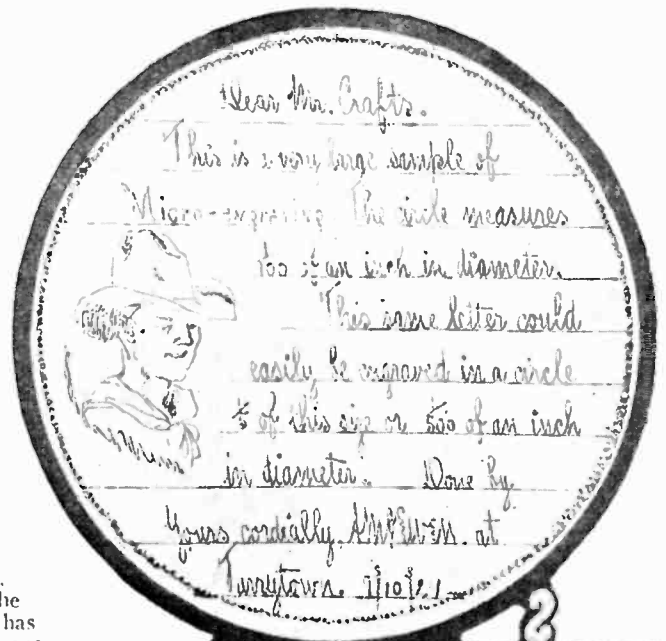 Dear Mr. Crafts.
This is a very large sample of
Micro-engraving. The circle measures
of an inch in diameter.
This same letter could
easily be engraved in a circle
of this size or of an inch
in diameter. Done by
Yours cordially, at
Tarrytown.
he
has
2